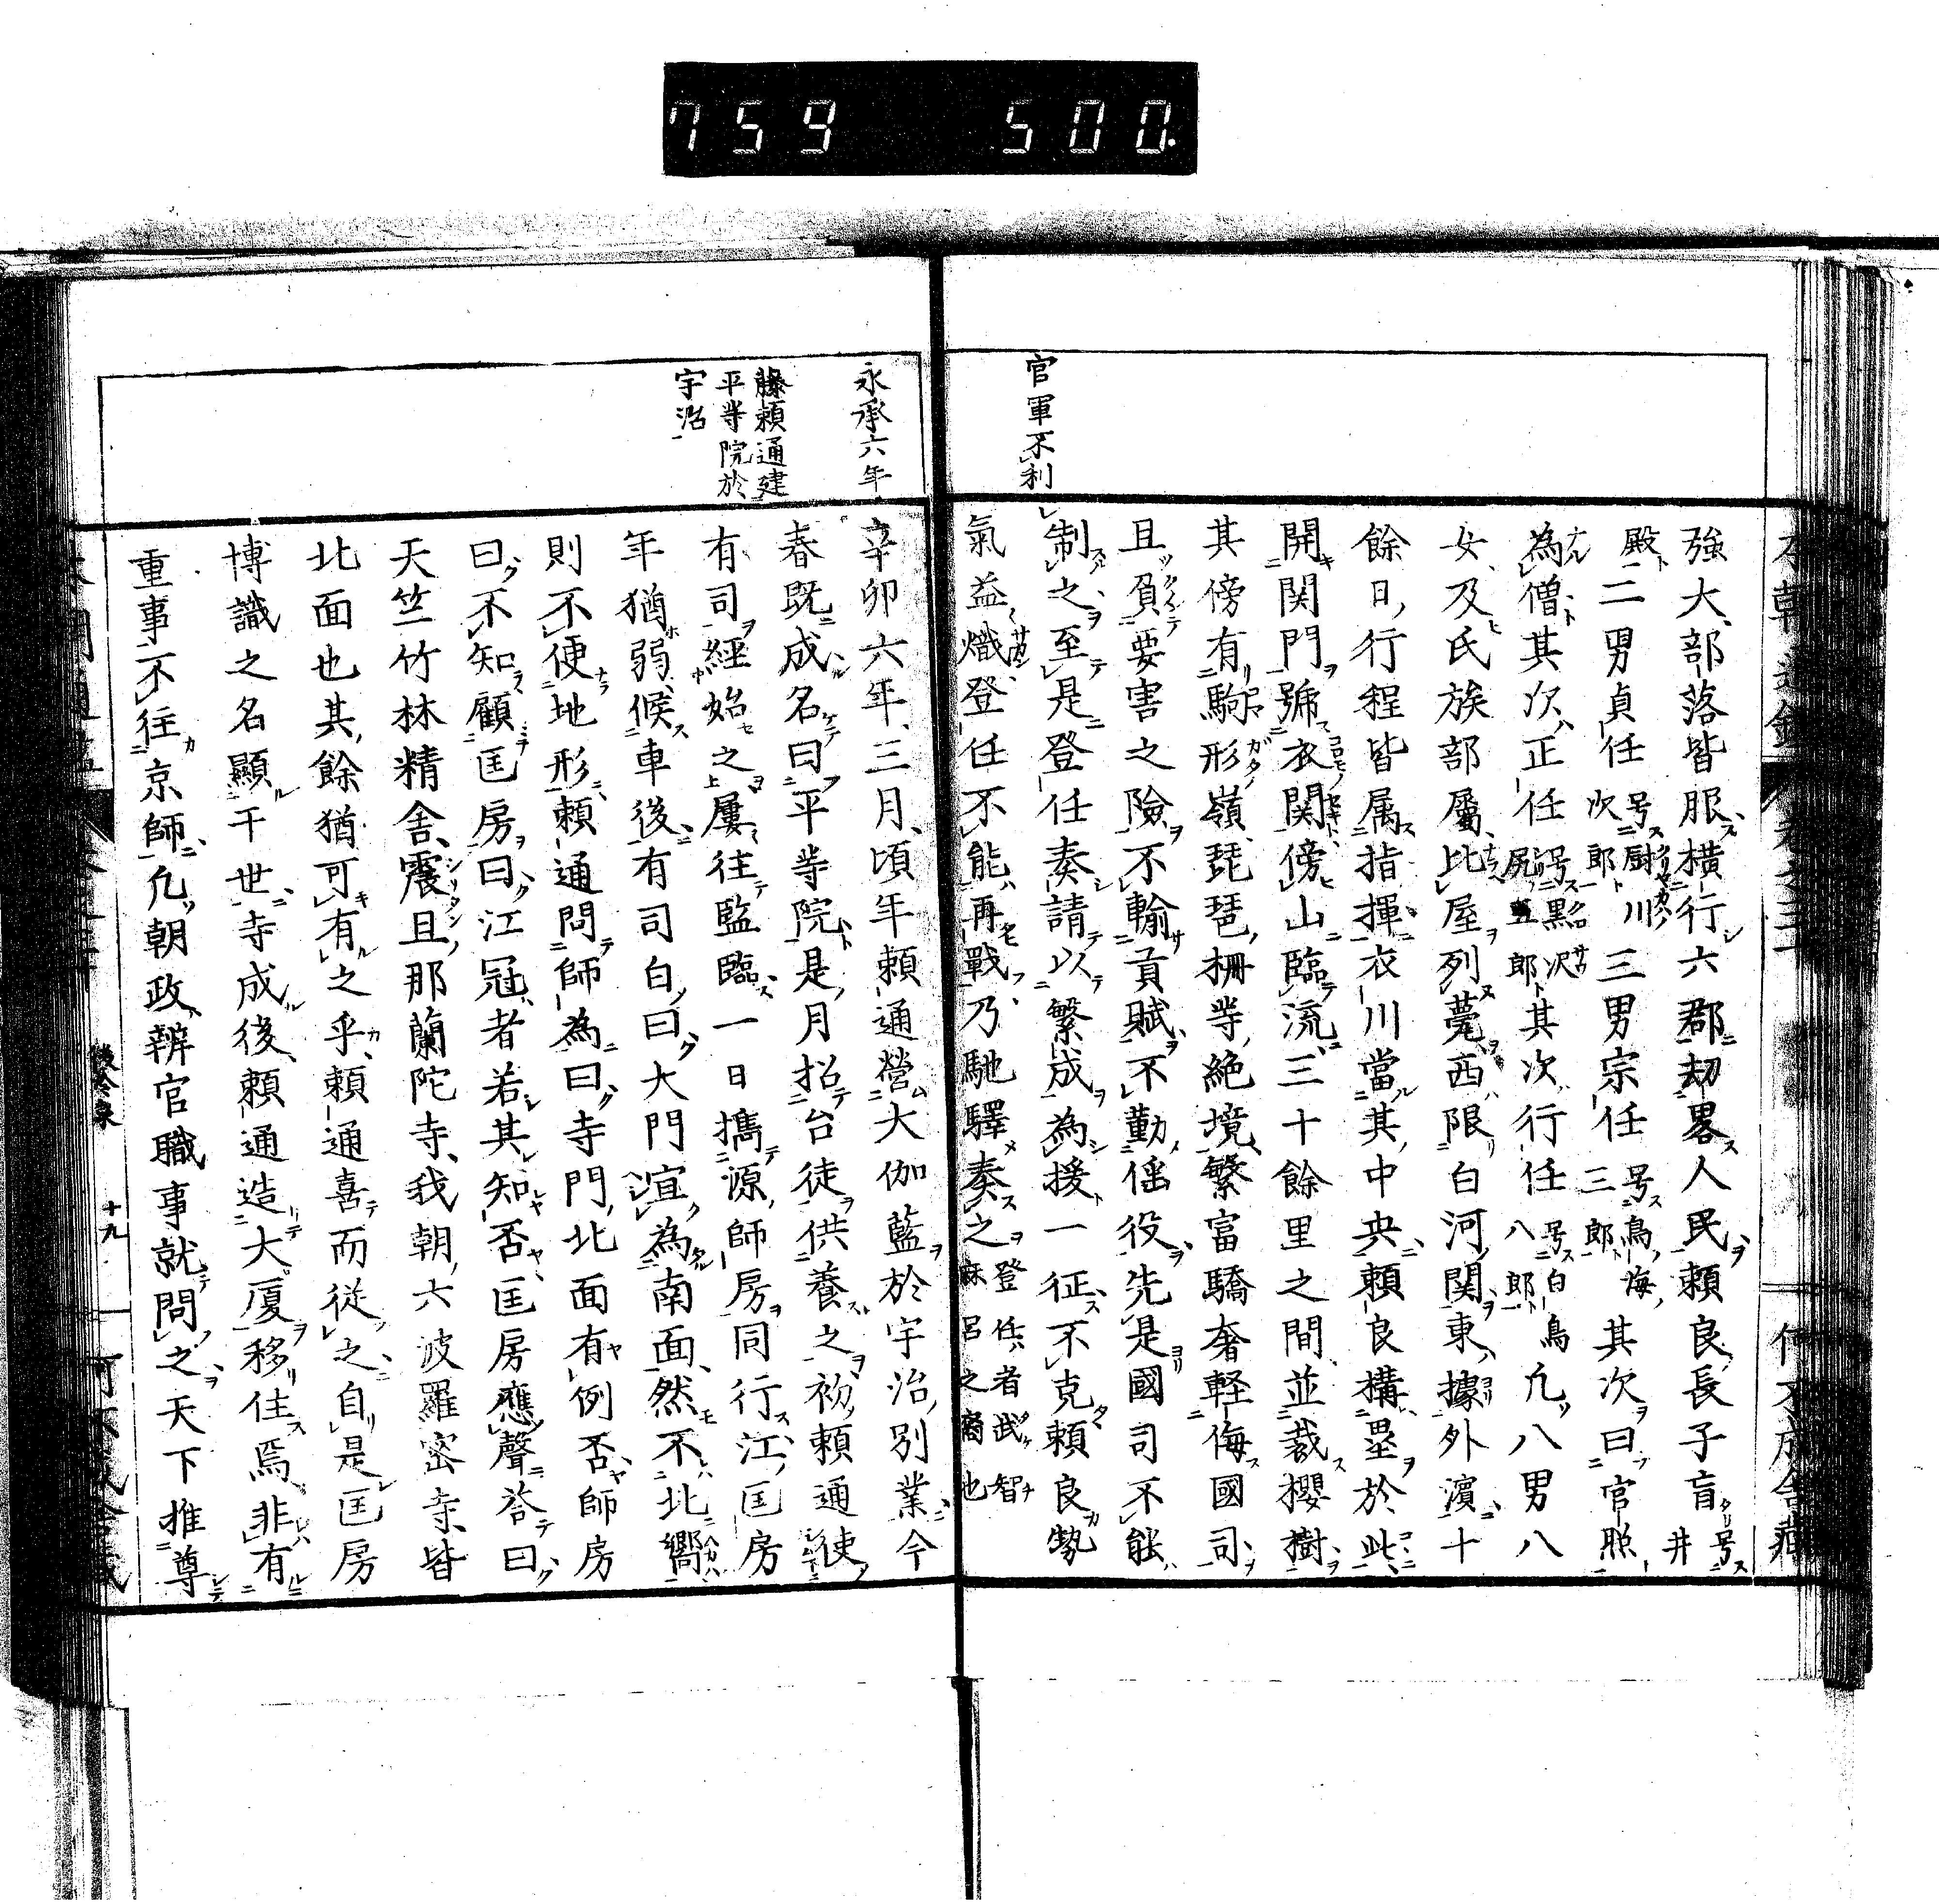 759 500.
官軍不利
強大部落皆服横行六郡劫畧人民頼良長子盲号井
殿二男貞任号厨川次郎三男宗任号鳥海三郎其次曰官照
為僧其次正任号黒沢尻五郎其次行任号白鳥八郎凢八男八
女及氏族部屬比屋列甍西限白河関東據外濵十
餘日行程皆属指揮衣川當其中央頼良構壘於此
開関門號衣関傍山臨流三十餘里之間並栽櫻樹
其傍有駒形嶺琵琶柵等絶境繁富驕奢軽侮國司
且負要害之険不輸貢賦不勤徭役先是國司不能
制之至是登任奏請以繁成為援一征不克頼良勢
氣益熾登任不能再戰乃馳驛奏之登任者武智麻呂之裔也
永承六年
藤頼通建
平等院於
宇治
辛卯六年三月頃年頼通營大伽藍於宇治別業今
春既成名曰平等院是月招台徒供養之初頼通使
有司經始之屢往監臨一日擕源師房同行江匡房
年猶弱候車後有司白曰大門宜為南面然不北嚮
則不便地形頼通問師為曰寺門北面有例否師房
曰不知顧匡房曰江冠者若其知否匡房應聲荅曰
天竺竹林精舎震且那蘭陀寺我朝六波羅密寺皆
北面也其餘猶可有之乎頼通喜而従之自是匡房
博識之名顯于世寺成後頼通造大厦移住焉非有
重事不往京師凢朝政辨官職事就問之天下推尊
十九